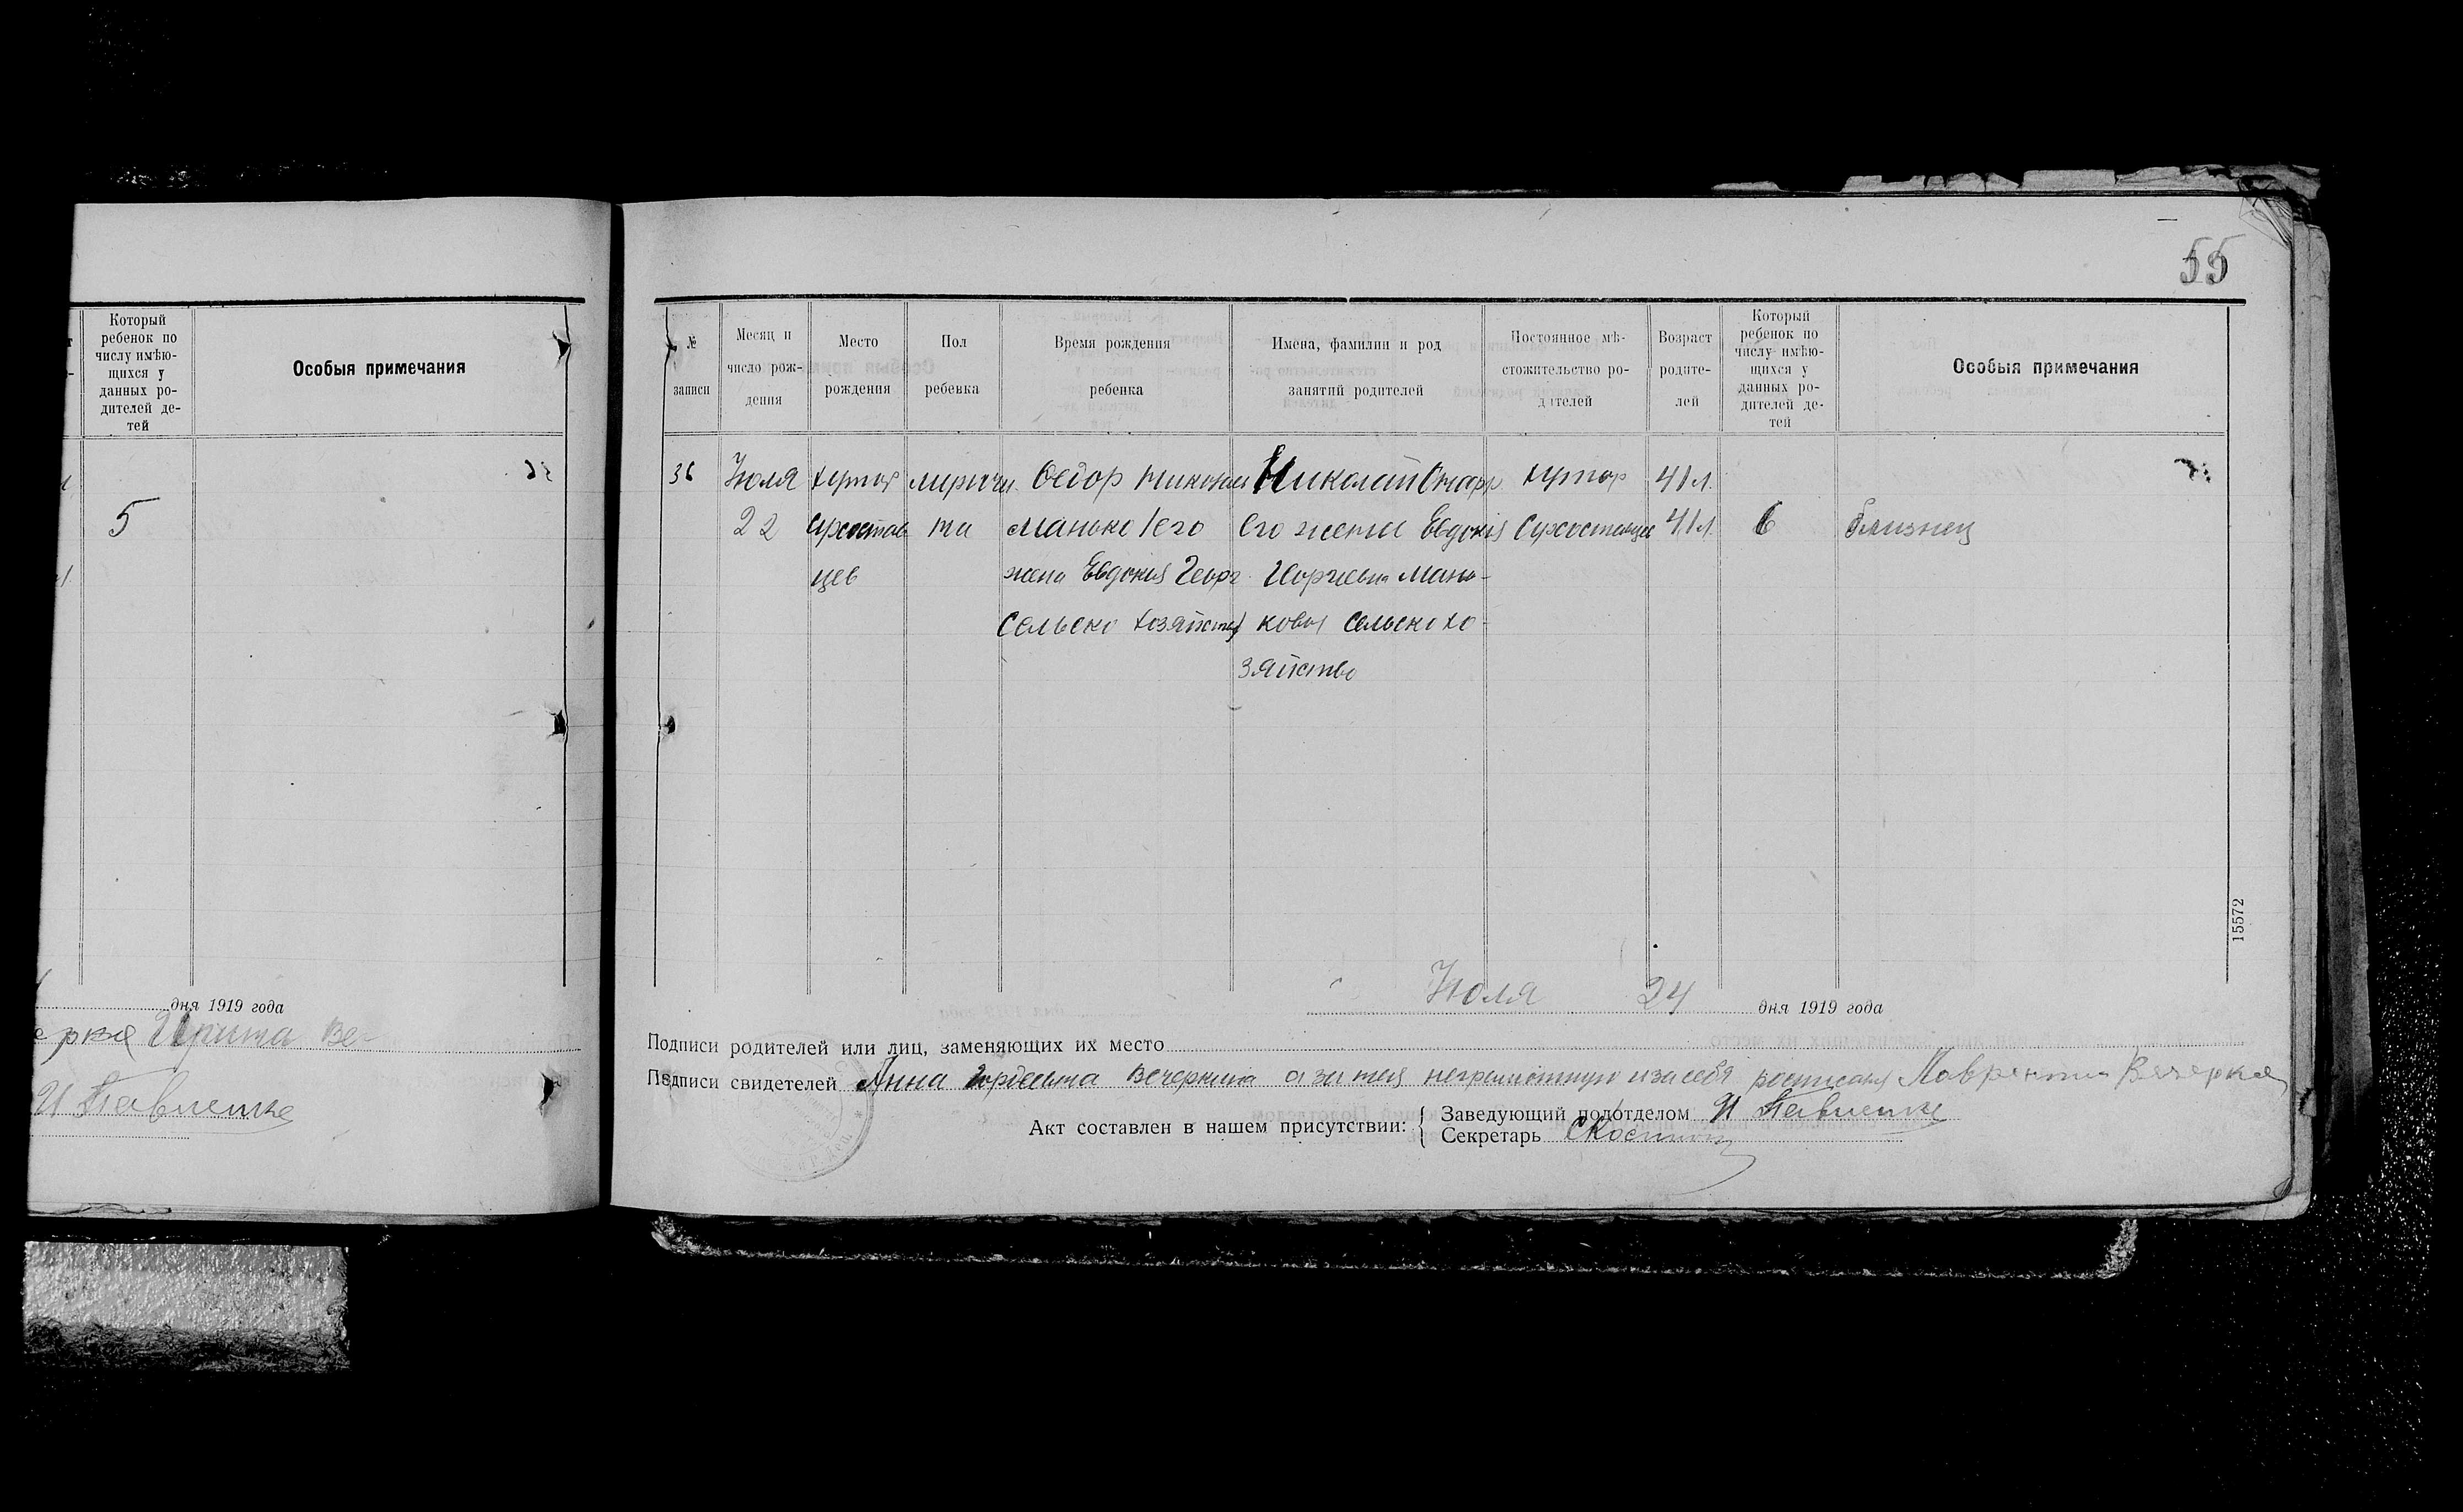 55
Который
ребенок по
числу имѣю-
щихся у
данных ро-
дителей де-
тей
Особыя примечания
5
дня 1919 года
Ирина Ве-
И Павленко
№
записи
Месяц и
число рож-
дения
Место
рождения
Пол
ребенка
Время рождения
ребенка
Имена, фамилии и род
занятий родителей
Постоянное мѣ-
стожительство ро-
дителей
Возраст
родите-
лей
Который
ребенок по
числу имѣю-
щихся у
данных ро-
дителей де-
тей
Особыя примечания
36
Июля
22
хутор
Сухостав
цев
Федор
Манько Его
жена Евдокия Георг
Сельско хозяйство
Николай
Его жена Евдокия
Георгиевна Мань-
кова сельско хо-
зяйство
хутор
Сухоставцев
41 л.
41 л.
6
Близнец
15572
Июля 24 дня 1919 года
Подписи родителей или лиц, заменяющих их место
Подписи свидетелей Анна Вечеркина а за нея неграмотную и за себя Лаврентий Вечерка
Акт составлен в нашем присутствии:
Заведующий подотделом И Павленко
Секретарь